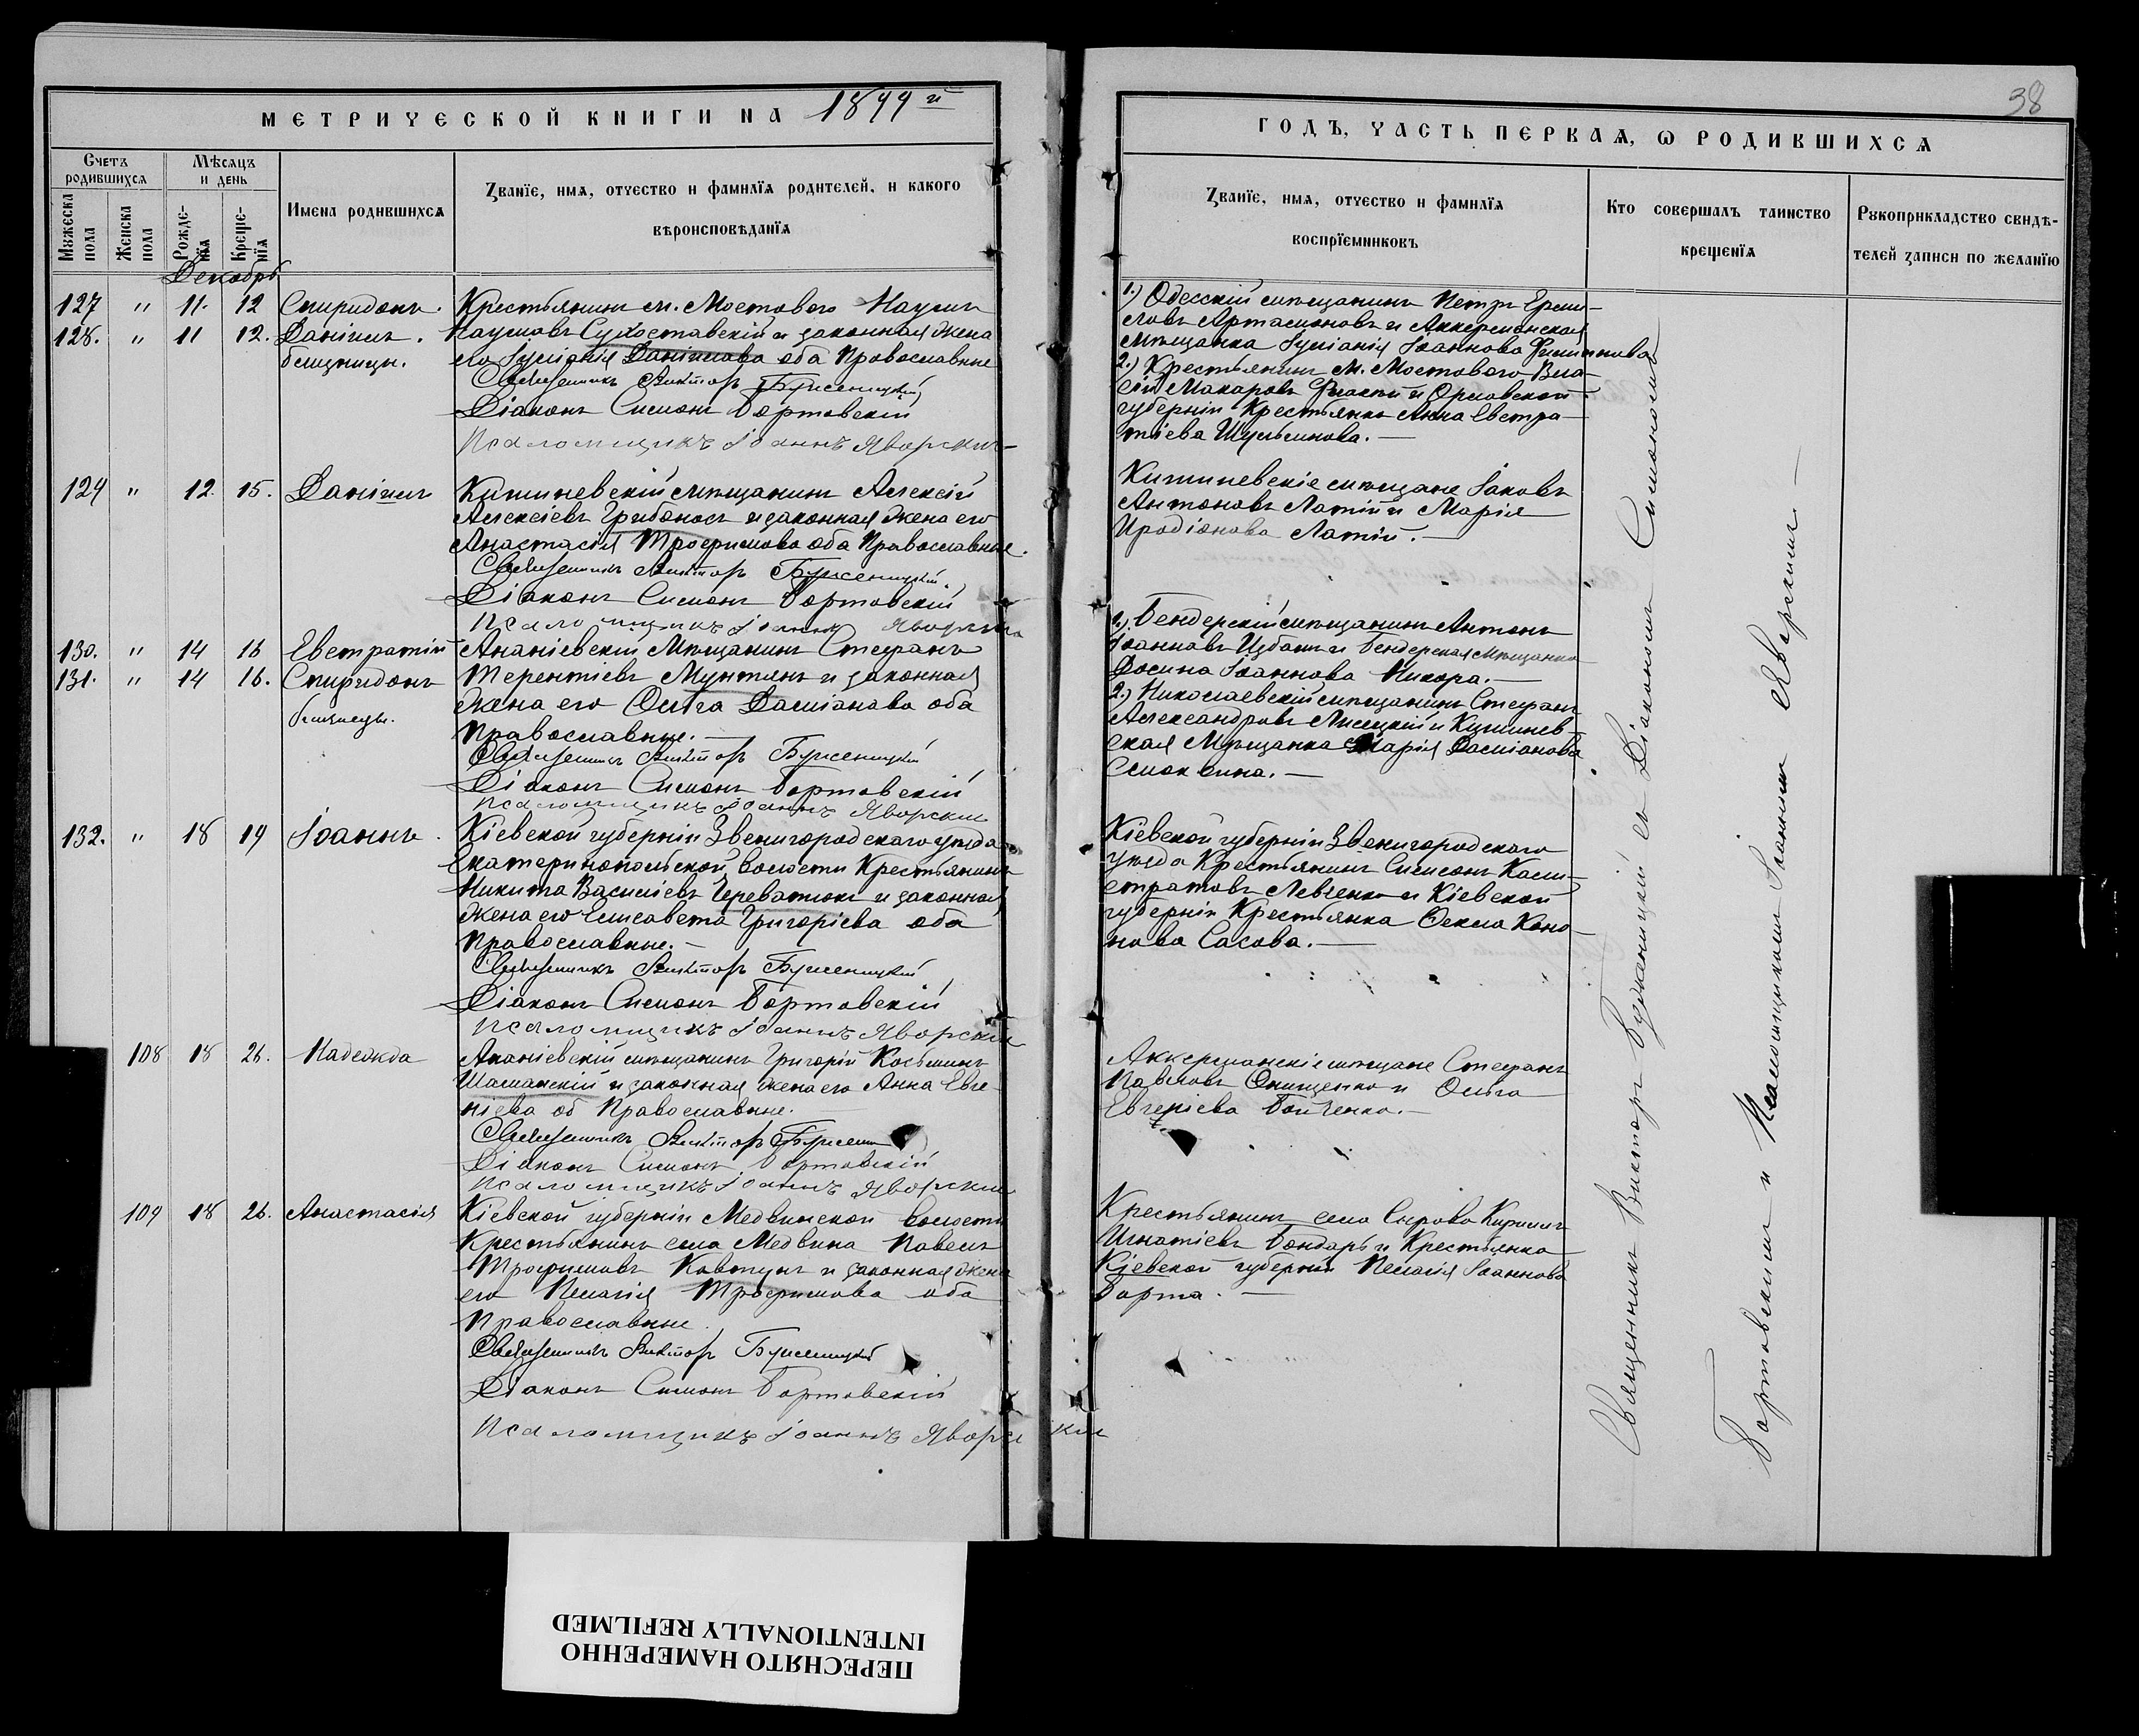 МЕТРИЧЕСКОЙ КНИГИ НА 1899 й
Счетъ родившихся
Мѣсяцъ и день
Мужеска пола
Женска пола
Рожденїя
Крещенїя
Имена родившихся
Званїе, имя, отчество и фамилїя родителей, и какого
вѣроисповѣданїя
Декабрь
127 " 11. 12 Спиридонъ. Крестьянинъ м. Мостового Наумъ
128. " 11 12. Даніилъ. Наумовъ Сухоставскій и законная жена
близнецы. его Іуліанія Даніилова оба Православные
Священникъ Викторъ Буженицкій
Діаконъ Симонъ Бортовскій
Псаломщикъ Іоаннъ Яворскій
129 " 12. 15. Даніилъ Кишиневскій мѣщанинъ Алексій
Алексіевъ Грибанось и законная жена его
Анастасія Трофимова оба Православные.
Священникъ Викторъ Буженицкій.
Діаконъ Симонъ Бортовскій
Псаломщикъ Іоаннъ Яворскій
130. " 14 16 Евстратій Ананіевскій Мѣщанинъ Стефанъ
131. " 14 16. Спиридонъ Терентіевъ Мунтянъ и законная
близнецы. жена его Ольга Даміанова оба
Православные.
Священникъ Викторъ Буженицкій
Діаконъ Симонъ Бортовскій
Псаломщикъ Іоаннъ Яворскій
132. " 18 19 Іоаннъ. Кіевской губерніи Звенигородскаго уѣзда
Екатеринопольской волости Крестьянинъ
Никита Василіевъ Череватюкъ и законная
жена его Елисавета Григоріева оба
Православные.
Священникъ Викторъ Буженицкій
Діаконъ Симонъ Бортовскій
Псаломщикъ Іоаннъ Яворскій
108 18 26. Надежда Ананіевскій мѣщанинъ Григорій Косьминъ
Шаманскій и законная жена его Анна Евге-
ніева об Православные.
Священникъ Викторъ
Діаконъ Симонъ Бортовскій
Псаломщикъ Іоаннъ Яворскій
109 18 26. Анастасія Кіевской губерніи Медвинской волости
Крестьянинъ села Медвина Павелъ
Трофимовъ Ковтунъ и законная жена
его Пелагія Трофимова оба
Православные
Священникъ Викторъ Буженицкій
Діаконъ Симонъ Бортовскій
Псаломщикъ Іоаннъ Яворскій
38
ГОДЪ, ЧАСТЬ ПЕРВАЯ, Ѡ РОДИВШИХСЯ
Званїе, имя, отчество и фамилїя
воспрїемниковъ
Кто совершалъ таинство
крещенїя
Рукоприкладство свидѣ-
телей записи по желанїю
1.) Одесскій мѣщанинъ Петръ Ерми-
ловъ Артамоновъ и Аккерманская
мѣщанка Іуліанія Іоаннова
2.) Крестьянинъ м. Мостового
Макаровъ и Орловской
губерніи Крестьянка Анна Евстра-
тіева Шульминова.
Кишиневскіе мѣщане Іаковъ
Антоновъ Латій и Марія
Иродіонова Латій.
1.) Бендерскій мѣщанинъ Антонъ
Іоанновъ Цубанъ и Бендерская Мѣщанка
Досина Іоаннова Никора.
2.) Николаевскій мѣщанинъ Стефанъ
Александровъ Лисецкій и Кишинев-
ская Мѣщанка Марія Даміанова
Кіевской губерніи Звенигородскаго
уѣзда Крестьянинъ Симеонъ Кали-
стратовъ Левченко и Кіевской
губерніи Крестьянка Фекла Коно-
нова Сасова.
Аккерманскіе мѣщане Стефанъ
Павловъ Онищенко и Ольга
Евгеніева Бойченко.
Крестьянинъ села Сырова Кириллъ
Игнатіевъ Бондарь и Крестьянка
Кіевской губерніи Пелагія Іоаннова
Борта.
Священникъ Викторъ Буженицкій съ Діакономъ Симономъ
Бортовскимъ и Псаломщикомъ Іоанномъ Яворскимъ
ПЕРЕСНЯТО НАМЕРЕННО
INTENTIONALLY REFILMED